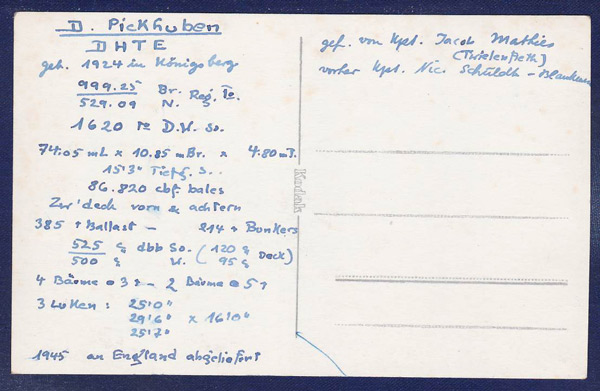 D. Pickhuben
DHTE
geb. 1924 in Königsberg
999.25 Br. Reg. To.
529.09 N.
1620 To D.W. So.
74.05 mL x 10.85 mBr. x 4.80 mT.
15'3" Tiefg. S..
86.820 cbf bales
Zw'deck vorn & achtern
385 t Ballast - 214 t Bunkers
525 dbb So. (120 Deck)
500 W. (95)
4 Bäume @ 3 t - 2 Bäume @ 5 t
3 Luken: 25'0"
29'6" x 16'0"
25'7"
1945 an England abgeliefert
gef. von Kpt. Jacob Mathies
(Twielenfleth)
vorher Kpt. Nic. Schuldt - Blankenese